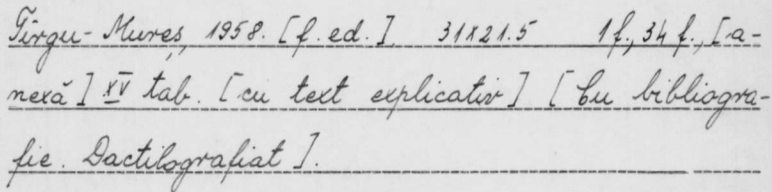 Tîrgu-Mureș, 1958. [f. ed.] 31x21.5 1 f., 34 f., [a-
nexă] XV tab. [cu text explicativ] [Cu bibliogra-
fie. Dactilografiat].